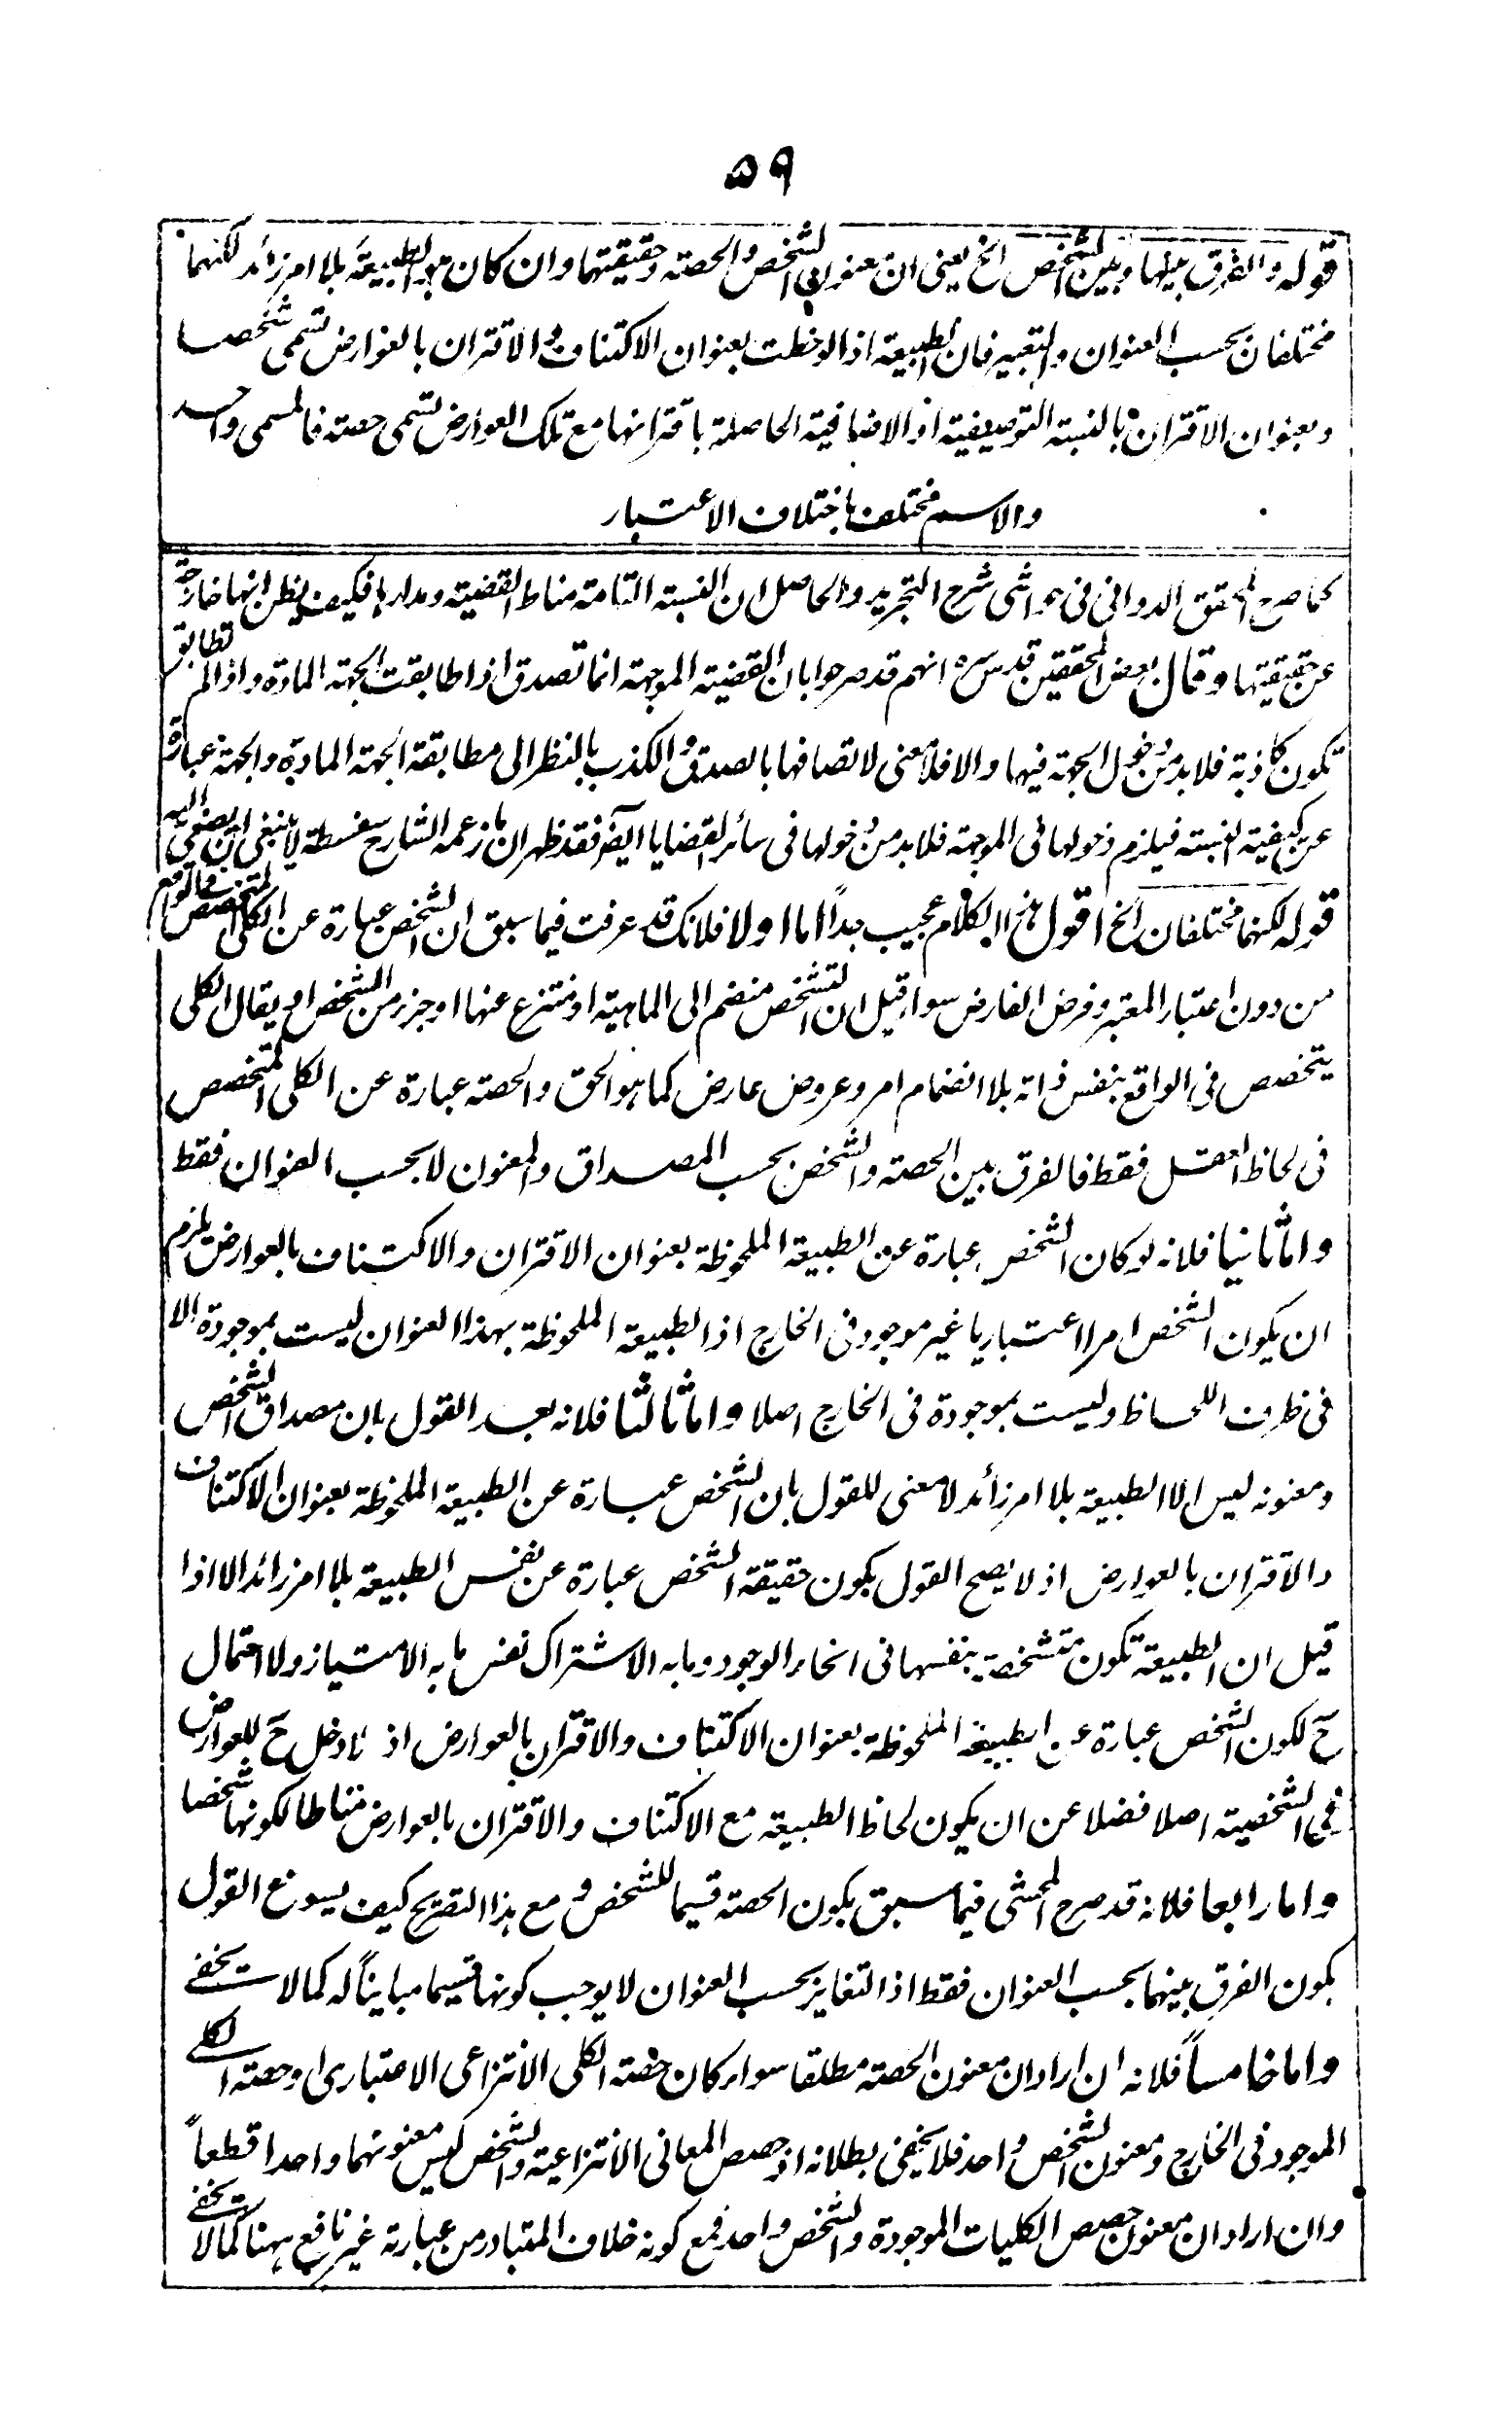 ۵۹
قوله والفرق بينها وبين الشخص الخ يعنى ان معنون الشخص والحصته وحقيقتهما وان كان هو الطبيعة بلا امر زائد لكنهما
مختلفان بحسب العنوان والتعبير فان الطبيعة اذا لوحظت بعنوان الاكتناف والاقتران بالعوارض تسمى شخصا
وبعنوان الاقتران بالنسبته التوصيفية او الاضافية الحاصلة باقترانها مع تلك العوارض تسمى حصته فالمسمى واحد
والاسم مختلف باختلاف الاعتبار
كما صرح المحقق الدوانى فى حواشى شرح التجريد والحاصل ان النسبته التامته مناط القضية ومدارها فكيف يظن انها خارجة
عن حقيقتها وقال بعض المحققين قدس سره انهم قد صرحوا بان القضية الموجهة انما تصدق اذا طابقت الجهة المادة واذا لم تطابق
تكون كاذبة فلا بد من دخول الجهة فيها والا فلا معنى لاتصافها بالصدق والكذب بالنظر الى مطابقة الجهة المادة والجهة عبارة
عن كيفية النسبته فيلزم دخولها فى الموجهة فلا بد من دخولها فى سائر القضايا ايضا فقد ظهر ان ما زعمه الشارح سفسطة لا ينبغى ان يصغى اليه
قوله لكنهما مختلفان الخ اقول هذا الكلام عجيب جداً اما اولا فلانك قد عرفت فيما سبق ان الشخص عبارة عن الكلى المتخصص فى الواقع
من دون اعتبار المعتبر وفرض الفارض سواء قيل ان التشخص منضم الى الماهية او منتزع عنها او جزء من الشخص او يقال الكلى
يتخصص فى الواقع بنفس ذاته بلا انضمام امر وعروض عارض كما هو الحق والحصته عبارة عن الكلى المتخصص
فى لحاظ العقل فقط فالفرق بين الحصته والشخص بحسب المصداق والمعنون لا بحسب العنوان فقط
واما ثانيا فلانه لو كان الشخص عبارة عن الطبيعة الملحوظة بعنوان الاقتران والاكتناف بالعوارض يلزم
ان يكون الشخص امرا اعتباريا غير موجود فى الخارج اذ الطبيعة الملحوظة بهذا العنوان ليست بموجودة الا
فى ظرف اللحاظ وليست بموجودة فى الخارج اصلا واما ثالثا فلانه بعد القول بان مصداق الشخص
ومعنونه ليس الا الطبيعة بلا امر زائد لا معنى للقول بان الشخص عبارة عن الطبيعة الملحوظة بعنوان الاكتناف
والاقتران بالعوارض اذ لا يصح القول بكون حقيقة الشخص عبارة عن نفس الطبيعة بلا امر زائد الا اذا
قيل ان الطبيعة تكون متشخصة بنفسها فى انحاء الوجود وما به الاشتراك نفس ما به الامتياز ولا احتمال
ح لكون الشخص عبارة عن الطبيعة الملحوظة بعنوان الاكتناف والاقتران بالعوارض اذ لا دخل ح للعوارض
فى الشخصية اصلا فضلا عن ان يكون لحاظ الطبيعة مع الاكتناف والاقتران بالعوارض مناطا لكونها شخصا
واما رابعا فلانه قد صرح المحشى فيما سبق بكون الحصته قسيما للشخص ومع هذا التصريح كيف يسوغ القول
بكون الفرق بينهما بحسب العنوان فقط اذ التغاير بحسب العنوان لا يوجب كونها قسيما مبايناً له كما لا يخفى
واما خامساً فلانه ان اراد ان معنون الحصته مطلقا سواء كان حصته الكلى الانتزاعى الاعتبارى او حصته الكلى
الموجود فى الخارج ومعنون الشخص واحد فلا يخفى بطلانه اذ حصص المعانى الانتزاعية والشخص ليس معنونهما واحدا قطعاً
وان اراد ان معنون حصص الكليات الموجودة والشخص واحد فمع كونه خلاف المتبادر من عبارته غير نافع ههنا كما لا يخفى